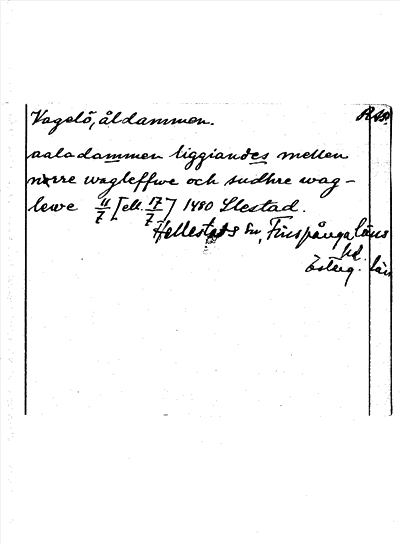 Vagelö, åldammen.
aaladammen liggiandes mellen
nørre wagleffwe och sudhre wag-
lewe 11/7 [ell. 17/7] 1480 Slestad.
Hellestads sn, Finspånga läns
hd.
Österg. län